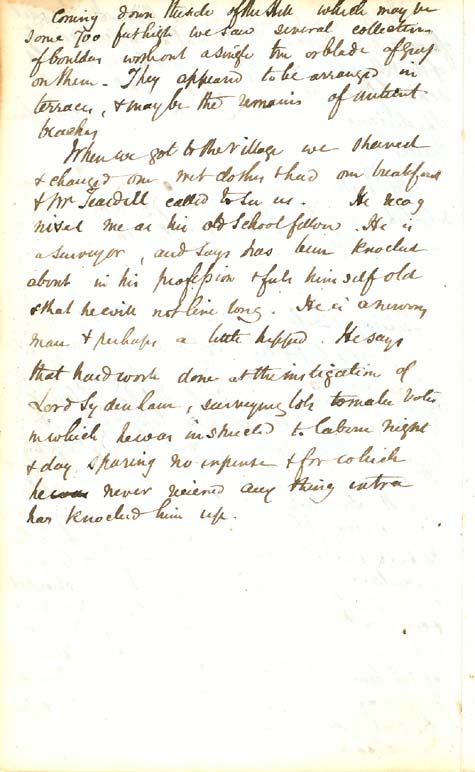 Coming down the side of the Hill which may be
some 700 feet high we saw several collections
of boulders without a single tree or blade of grass
on them - They appeared to be arranged in
terraces, & may be the remains of ancient
beaches
When we got to the Village we shaved
& changed our wet clothes & had our breakfast
& Mr called to see us. He recog
nised me as his old School fellow. He is
a surveyor, and says has been knocked
about in his profession & feels himself old
& that he will not live long. He is a nervous
man & perhaps a little hipped. He says
that hard work done at the instigation of
Lord Sydenham, surveying lots to make Votes
in which he was instructed to labour night
& day sparing no expense & for which
he never received any thing extra
has knocked him up.